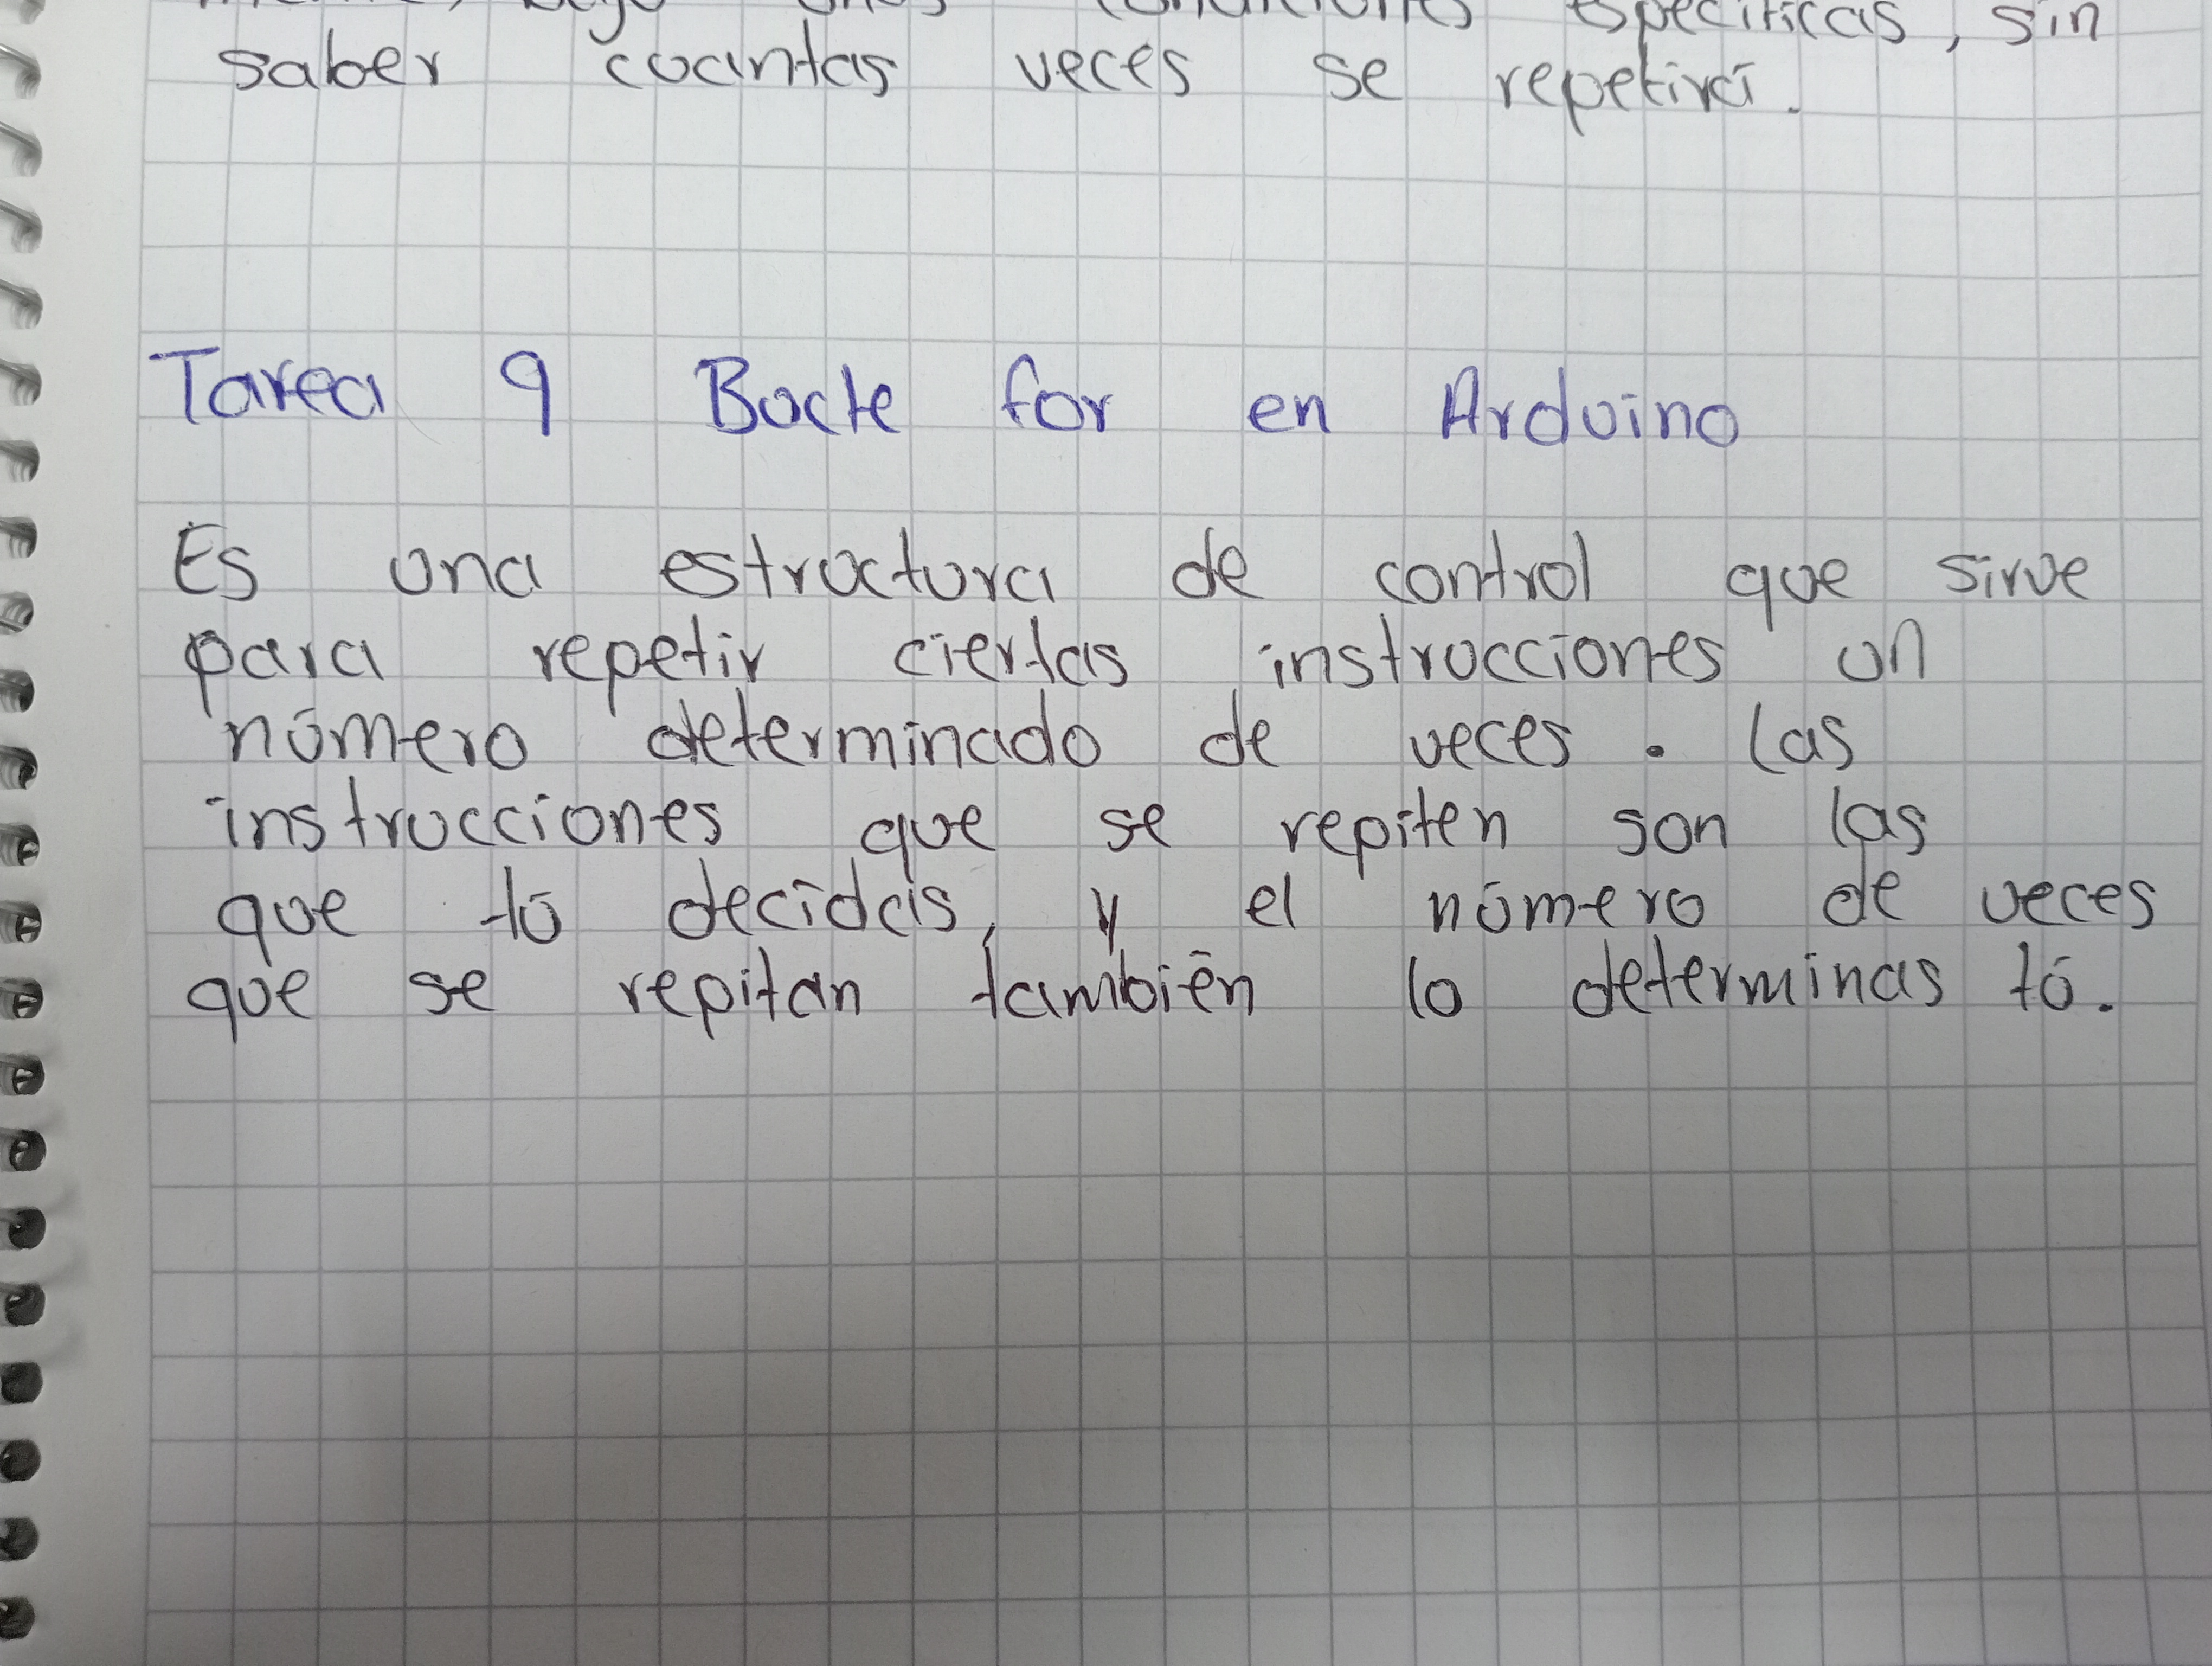 bajo unas condiciones específicas, sin
saber cuantas veces se repetirá.
Tarea 9 Bucle for en Arduino
Es una estructura de control que sirve
para repetir ciertas instrucciones un
número determinado de veces. Las
instrucciones que se repiten son las
que tú decidas, y el número de veces
que se repitan también lo determinas tú.